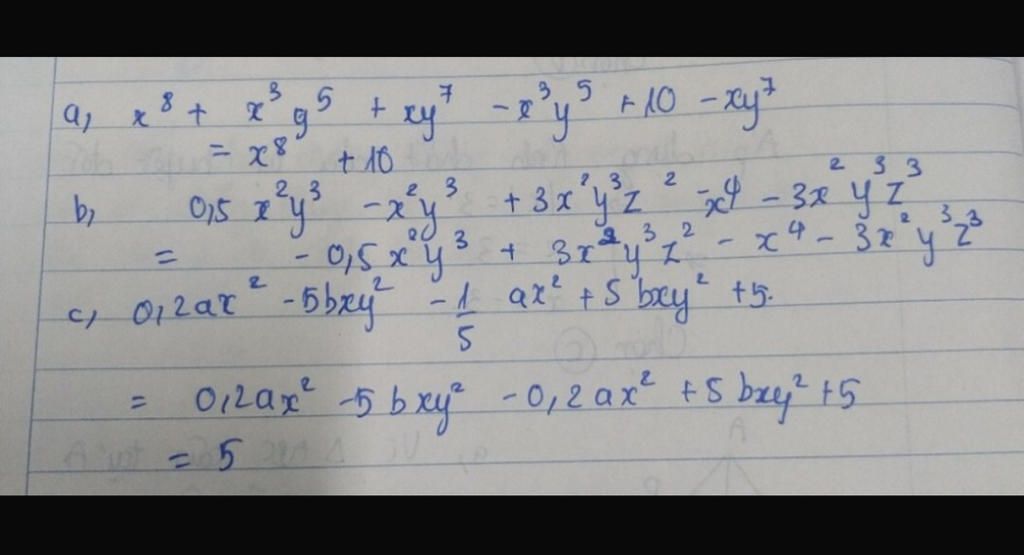 a, x⁸ + x³y⁵ + xy⁷ - x³y⁵ + 10 - xy⁷
= x⁸ + 10
b, 0,5 x²y³ - x²y³ + 3x²y³z² - x⁴ - 3x²y³z³
= - 0,5x²y³ + 3x²y³z² - x⁴ - 3x²y³z³
c, 0,2ax² - 5bxy² - 1/5 ax² + 5bxy² + 5.
= 0,2ax² - 5bxy² - 0,2ax² + 5bxy² + 5
= 5